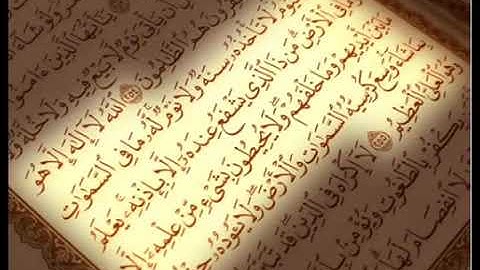 يَـٰٓأَيُّهَا ٱلَّذِينَ ءَامَنُوٓا۟
أَن يَأْتِىَ يَوْمٌ لَّا بَيْعٌ فِيهِ وَلَا خُلَّةٌ وَلَا
هُمُ ٱلظَّـٰلِمُونَ ٢٥٤ ٱللَّهُ لَآ إِلَـٰهَ إِلَّا هُوَ
لَا تَأْخُذُهُۥ سِنَةٌ وَلَا نَوْمٌ لَّهُۥ مَا فِى ٱلسَّمَـٰوَٰتِ
فِى ٱلْأَرْضِ مَن ذَا ٱلَّذِى يَشْفَعُ عِندَهُۥٓ إِلَّا بِإِذْنِهِۦ يَعْلَمُ
بَيْنَ أَيْدِيهِمْ وَمَا خَلْفَهُمْ وَلَا يُحِيطُونَ بِشَىْءٍ مِّنْ عِلْمِهِۦٓ إِلَّا
شَآءَ وَسِعَ كُرْسِيُّهُ ٱلسَّمَـٰوَٰتِ وَٱلْأَرْضَ وَلَا يَـُٔودُهُۥ
وَهُوَ ٱلْعَلِىُّ ٱلْعَظِيمُ ٢٥٥ لَآ إِكْرَاهَ فِى ٱلدِّينِ قَد تَّبَيَّنَ
يَكْفُرْ بِٱلطَّـٰغُوتِ وَيُؤْمِنۢ
لَا ٱنفِصَامَ لَهَا